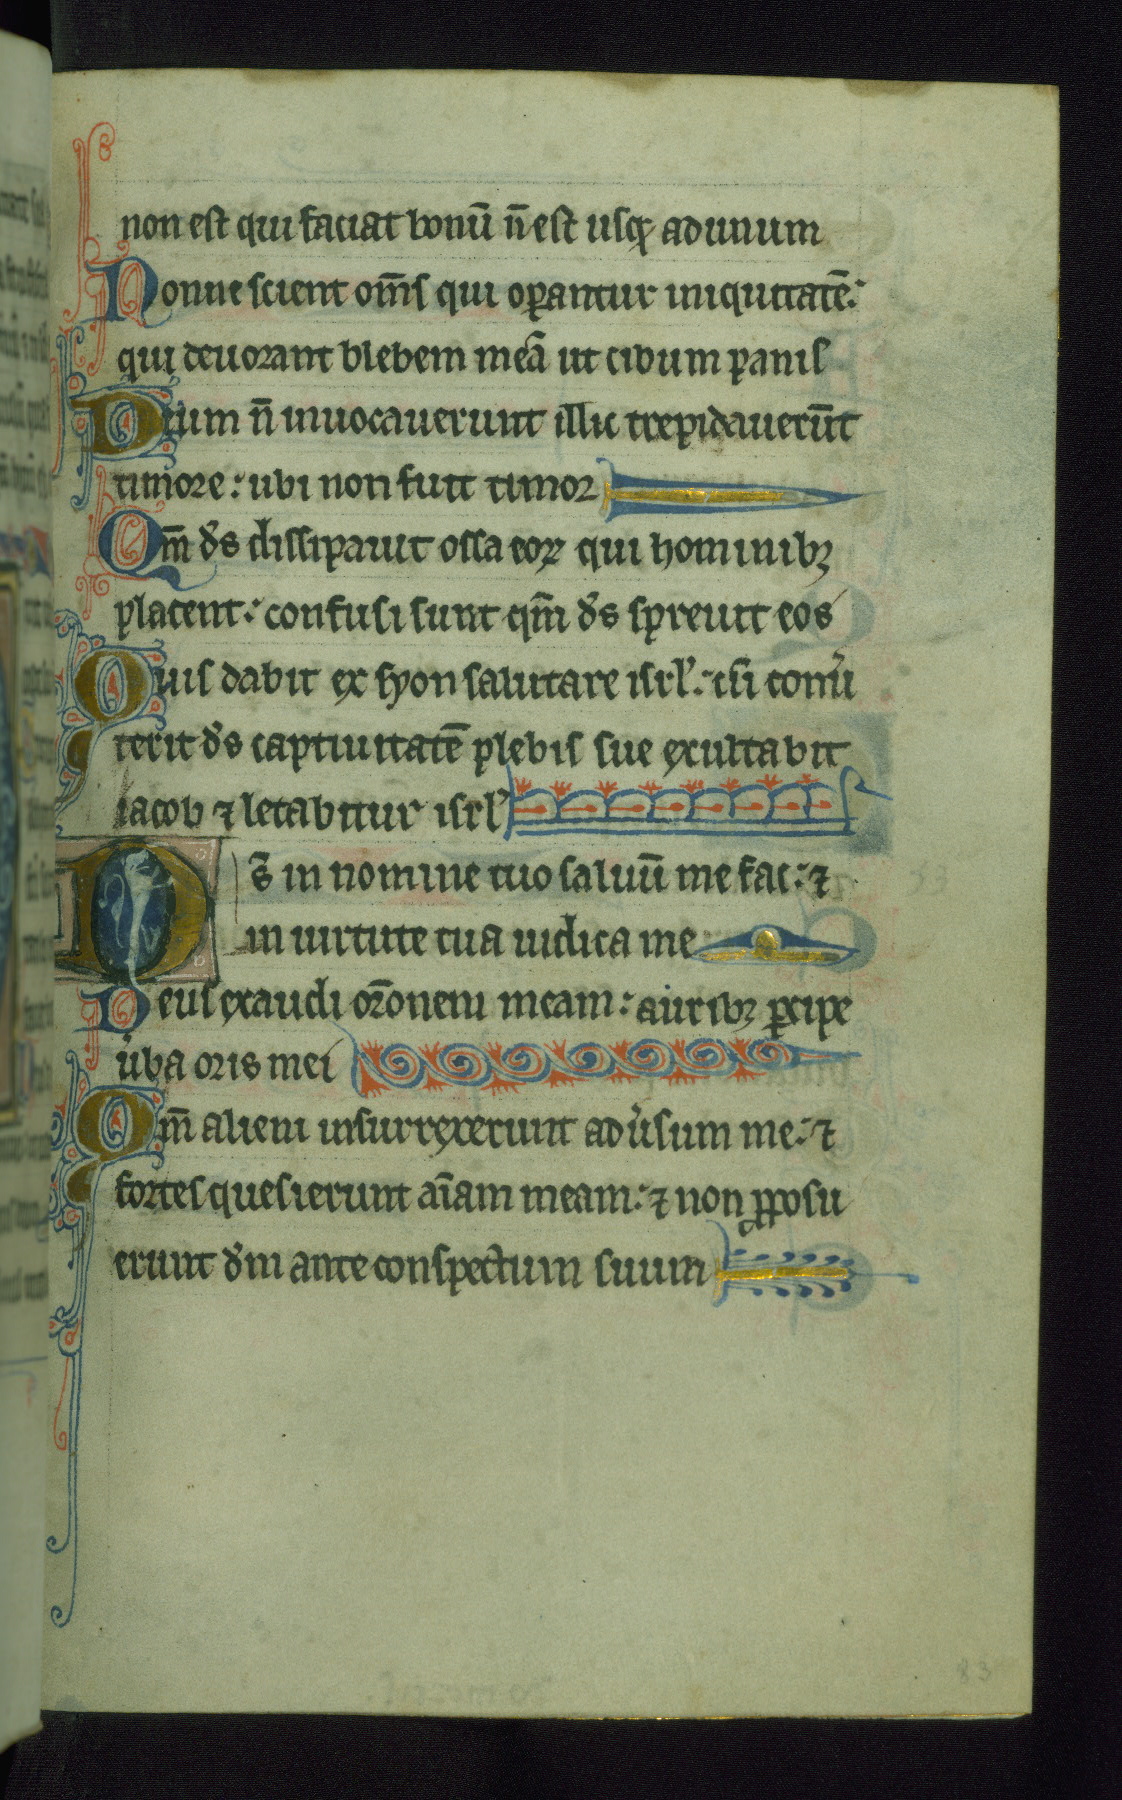 non est qui faciat bonū n̄ est usq; ad unum
Nonne scient om̄s qui oꝑantur iniquitatē:
qui deuorant blebem meā ut cibum panis
Dnum n̄ inuocauerunt illic trepidauerūt
timore: ubi non fuit timor
Qm̄ ds̄ dissipauit ossa eoꝝ qui hominibꝫ
placent: confusi sunt qm̄ ds̄ spreuit eos
Quis dabit ex syon salutare isrl̓: cū conu̓
terit ds̄ captiuitatē plebis sue exultabit
iacob ⁊ letabitur isrl̓
Ds̄ in nomine tuo saluū me fac: ⁊
in uirtute tua iudica me
Deus exaudi or̄onem meam: auribꝫ ꝑcipe
u̓ba oris mei
Qm̄ alieni insurrexerunt adu̓sum me: ⁊
fortes quesierunt aīam meam: ⁊ non ꝓposu
erunt dm̄ ante conspectum suum
83